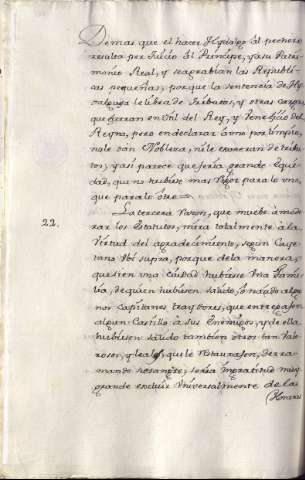 Demas que el hacer Hydalgo al pechero
resulta per Juicio al Principe, y a su Patri-
monio Real, y se agrabian las Republi-
cas pequeñas; porque la sentencia de Hy-
dalguia le libra de tributos, y otras cargas
que ceden en Util del Rey, y beneficio del
Reyno, pero en declarar à uno por limpio,
no le dàn Nobleza, ni le exoneran de tribu-
tos; y así parece que sería grande Equi-
dad, que no hubiese mas rigor para lo uno,
que para lo otro.
22. La tercera razon, que muebe à mode-
rar los Estatutos, mira totalmente à la
Virtud del agradecimiento, segun Caye-
tano Ubi supra, porque de la manera,
que si en una Ciudad hubiese una Fami-
lia, de quien hubiesen salido, ò nacido algu-
nos Capitanes traydores, que entregasen
algun Castillo à sus Enemigos, y de ella
hubiesen salido tambien otros tan Valе-
rosos, y leales, que le restaurasen, derra-
mando su sangre; sería ingratitud muy
grande excluir Universalmente de las
(Honras